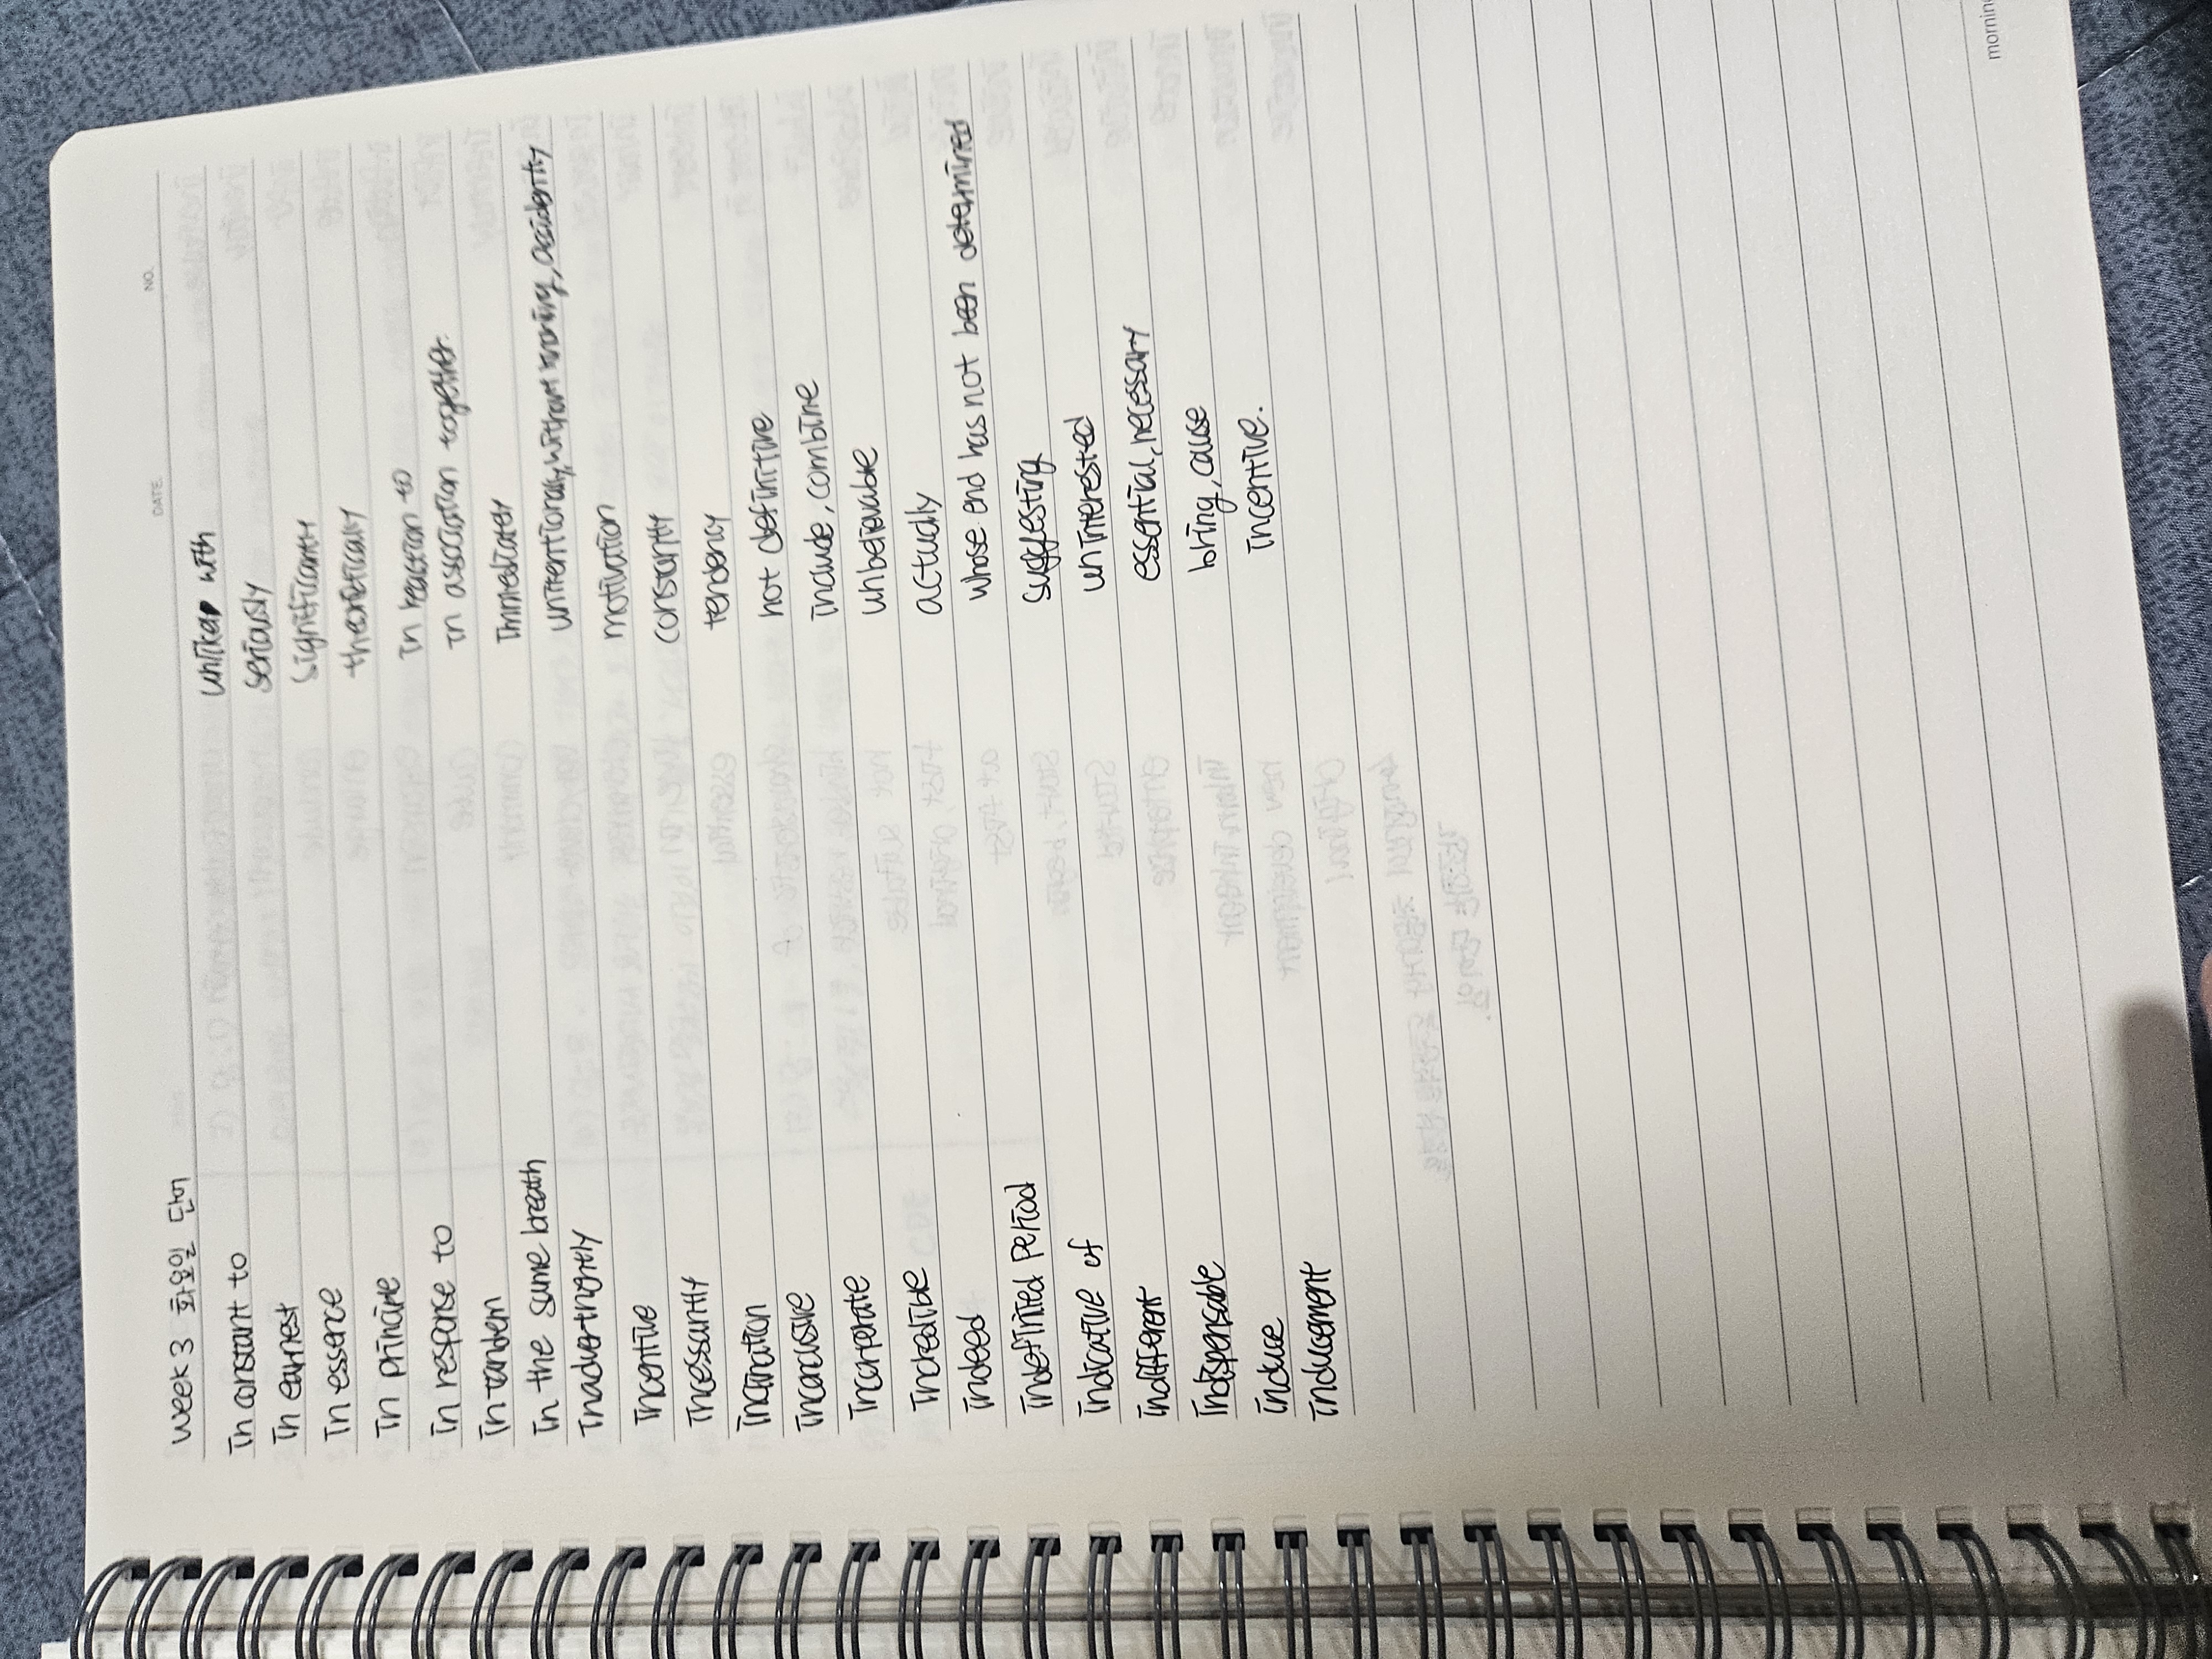 DATE. NO.
week 3 화요일 단어
In constant to unliked with
In earnest seriously
In essence significantly
In principle theoretically
In response to in reaction to
In tandem in association together
In the same breath immediately
Inadvertnently unintentionally, without knowing, accidently
Incentive motivation
Incessantly constantly
Inclination tendency
Inconclusive not definitive
Incorporate include, combine
Incredible unbelievable
indeed actually
indefinited period whose end has not been determined
indicative of suggesting
indifferent uninterested
Indispensable essential, necessary
induce bring, cause
inducement incentive.
morning